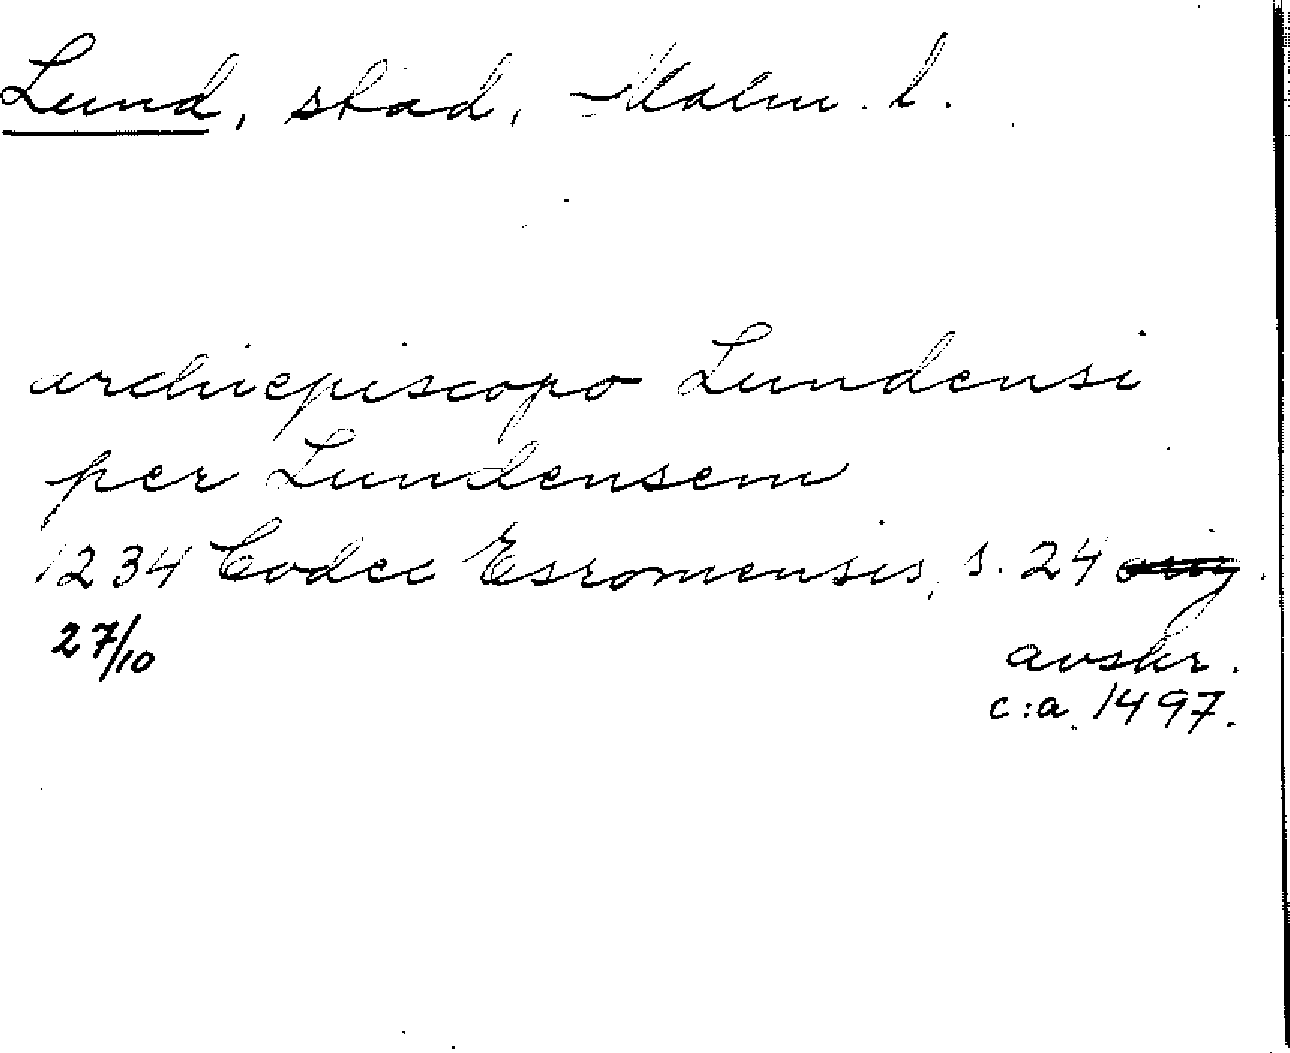 Lund, stad, Malm. l.
archiepiscopo Lundensi
per Lundensem
1234 Codex Esromensis, s. 24 orig.
27/10 avskr.
c:a 1497.